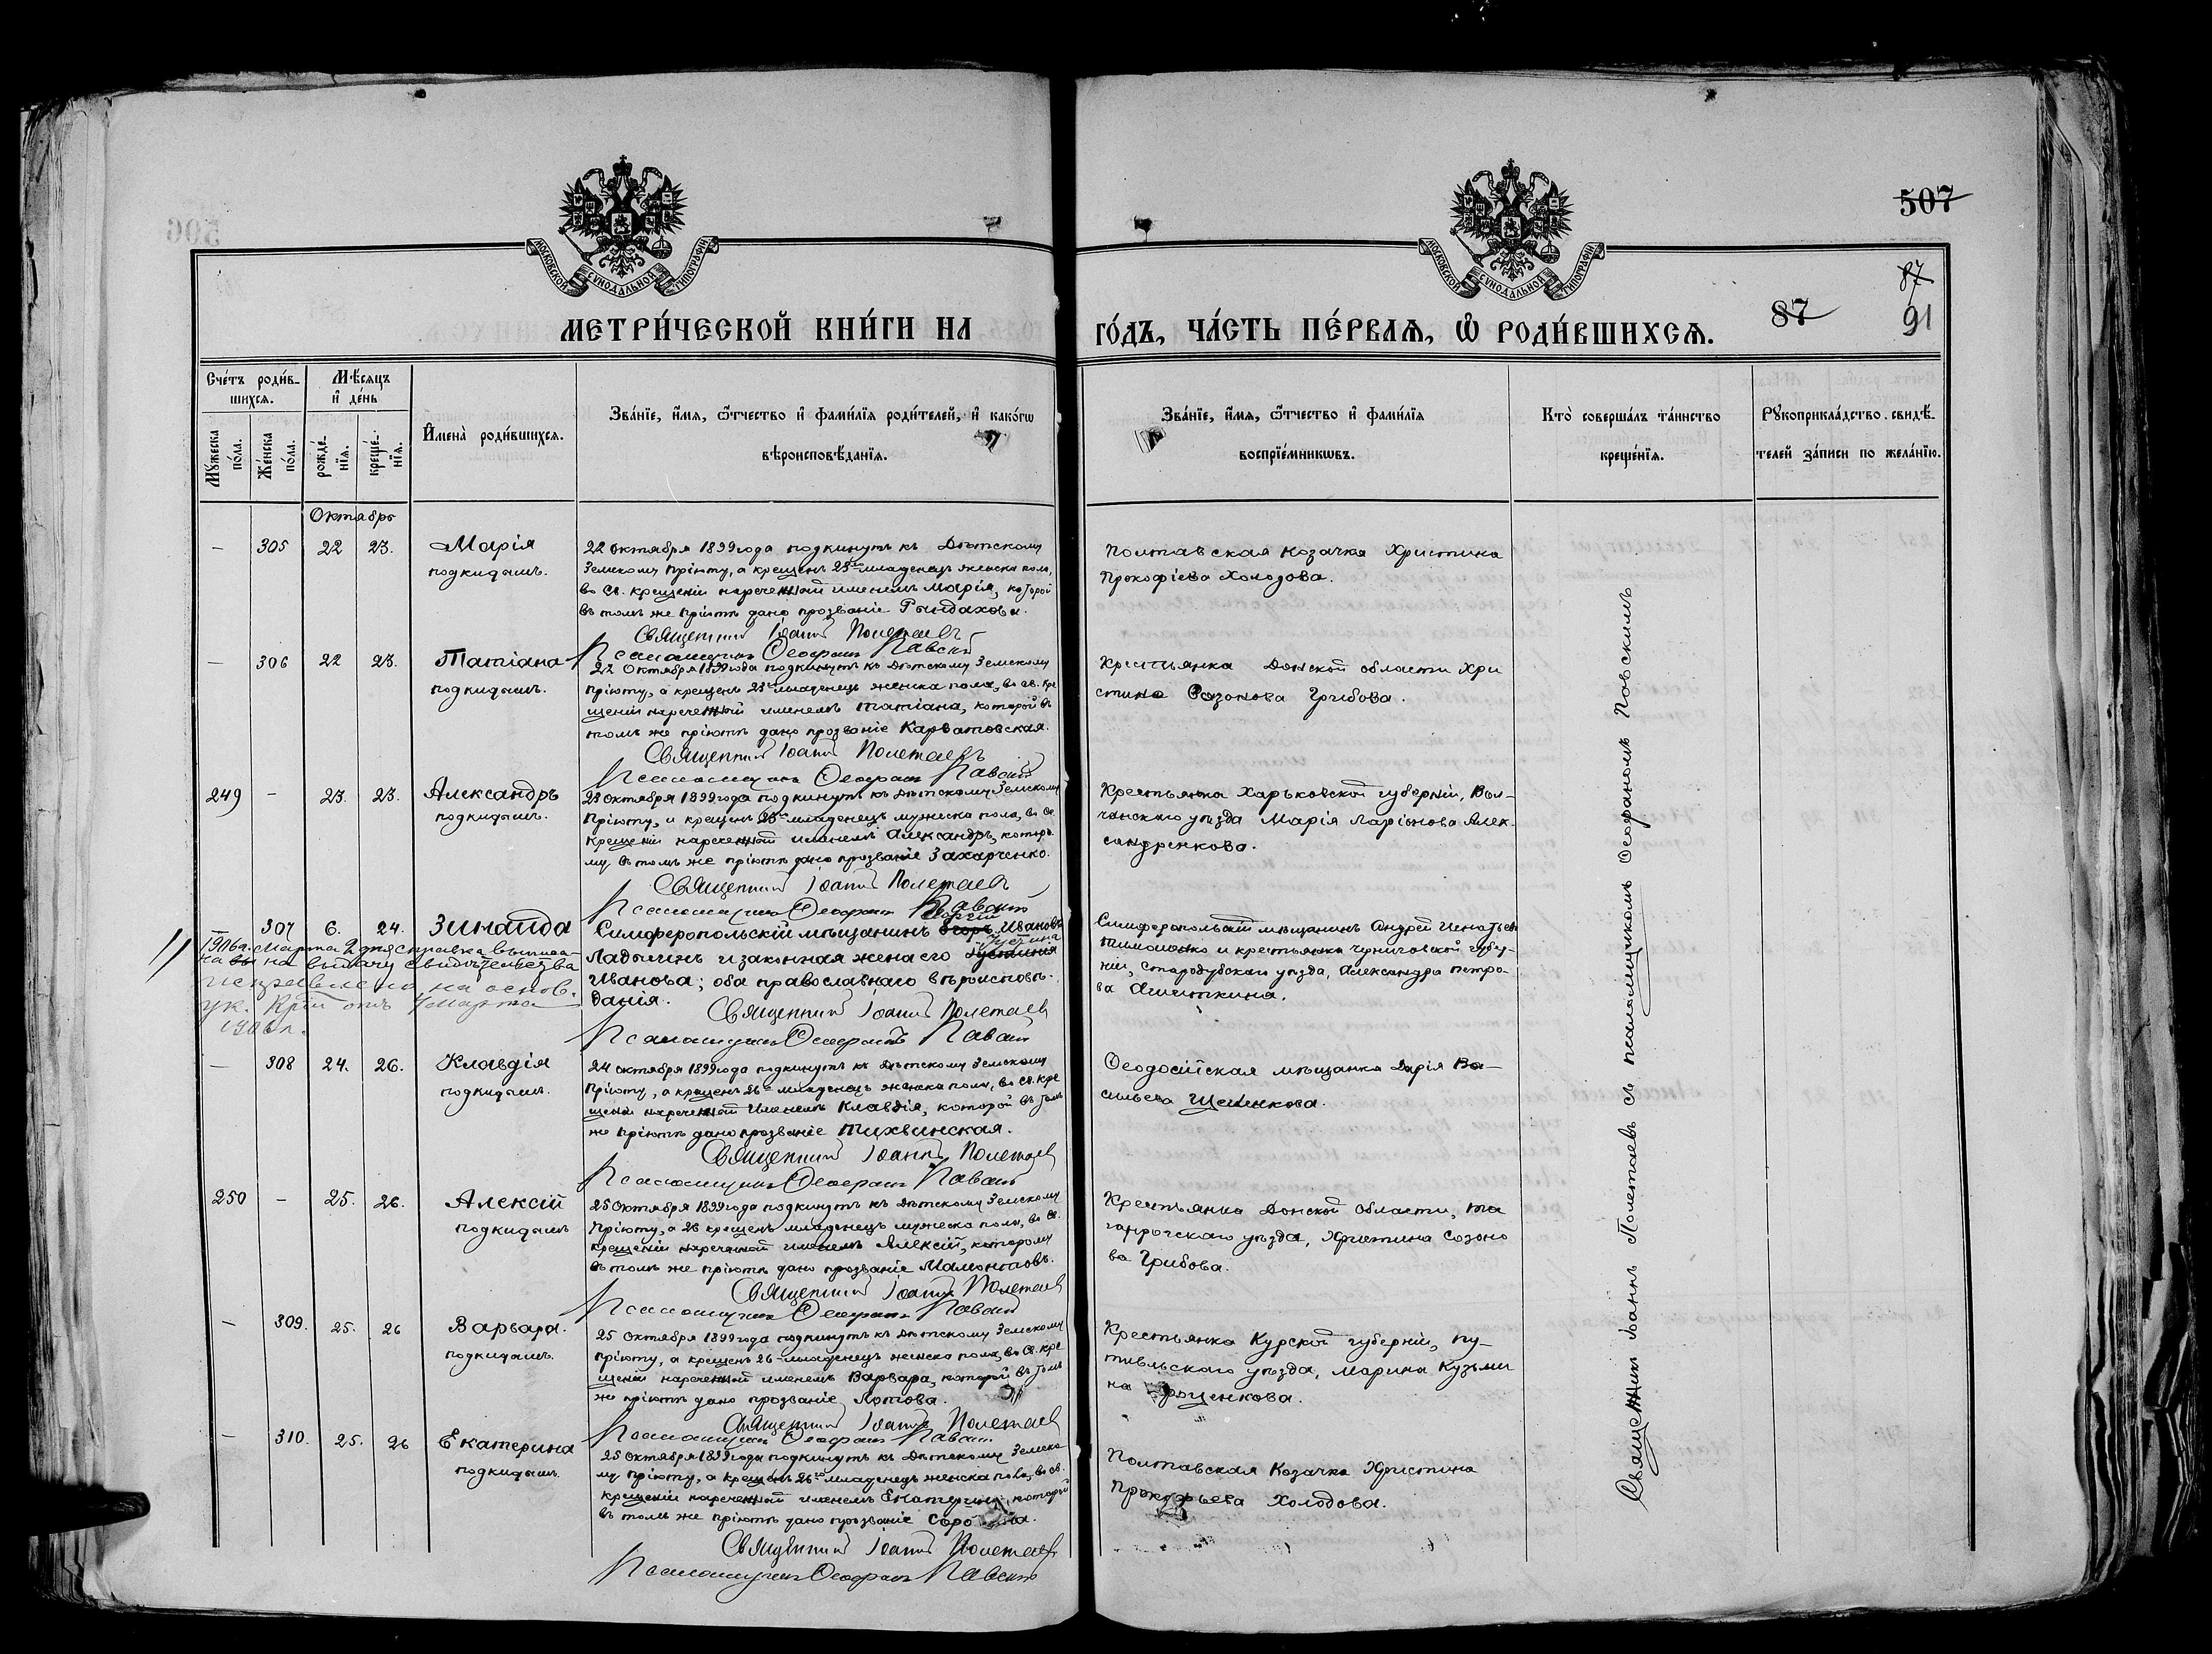 507
87
87
91
МОСКОВСКОЙ СѴНОДАЛЬНОЙ ТИПОГРАФІИ
МОСКОВСКОЙ СѴНОДАЛЬНОЙ ТИПОГРАФІИ
МЕТРИ́ЧЕСКОЙ КНИ́ГИ НА ГО́ДЪ, ЧА́СТЬ ПЕ́РВАѦ, Ѡ҆ РОДИ́ВШИХСѦ.
Сче́тъ роди́в-
шихсѧ.
Мꙋжеска по́ла.
Же́нска по́ла.
Мѣ́сѧцъ
и҆ де́нь
рожде́-нїѧ.
креще́-нїѧ.
И҆мена̀ роди́вшихсѧ.
Зва́нїе, и҆́мѧ, ѻ҆́тчество и҆ фами́лїѧ роди́телей, и҆ како́гѡ
вѣроисповѣ́данїѧ.
Зва́нїе, и҆́мѧ, ѻ҆́тчество и҆ фами́лїѧ
воспрїе́мникѡвъ.
Кто̀ соверша́лъ та́инство
креще́нїѧ.
Рꙋкоприкла́дство свидѣ́-
телей за́писи по жела́нїю.
Октябрь
— 305 22 23. Марія
подкидышъ.
22 октября 1899 года подкинутъ къ Дѣтскому
Земскому Пріюту, а крещенъ 23го младенецъ женска пола,
во Св. крещеніи нареченный именемъ Марія, которой
въ томъ же Пріютѣ дано прозваніе
Священникъ Іоаннъ Полетаевъ
Псаломщикъ Ѳеофанъ Павскій
Полтавская козачка Христина
Прокофіева Холодова.
— 306 22 23. Татіана
подкидышъ.
22 Октября 1899 года подкинутъ къ Дѣтскому Земскому
Пріюту, а крещенъ 23го младенецъ женска пола, во св. кре
щеніи нареченный именемъ Татіана, которой въ
томъ же пріютѣ дано прозваніе Карватовская.
Священникъ Іоаннъ Полетаевъ
Псаломщикъ Ѳеофанъ Павскій
Крестьянка Донской области Хри
стина Созонова Грибова.
249 — 23. 23. Александръ
подкидышъ.
23 октября 1899 года подкинутъ къ Дѣтскому Земскому
Пріюту, и крещенъ 23го младенецъ мужеска пола, во Св.
крещеніи нареченный именемъ Александръ, которо
му въ томъ же пріютѣ дано прозваніе Захарченко.
Священникъ Іоаннъ Полетаевъ
Псаломщикъ Ѳеофанъ Павскій
Крестьянка Харьковской губерніи, Вол-
чанскаго уѣзда Марія Ларіонова Алек-
сандренкова.
— 307 6. 24. Зинаида
1906 г. Марта 2 дня справка выписа-
на на выдачу свидѣтельства
исправлено на основ.
ук. отъ 4 марта
1906 г.
Георгій
Симферопольскій мѣщанинъ Егоръ Ивановъ
Іустина
Ладыгинъ и законная жена его Іустинія
Иванова; оба православнаго вѣроисповѣ-
данія.
Священникъ Іоаннъ Полетаевъ
Псаломщикъ Ѳеофанъ Павскій
Симферопольскій мѣщанинъ Андрей Игнатьев
Тимошенко и крестьянка Черниговской губер-
ніи, Стародубскаго уѣзда, Александра Петро-
ва
— 308 24. 26. Клавдія
подкидышъ.
24 октября 1899 года подкинутъ къ Дѣтскому Земскому
Пріюту, а крещенъ 26го младенецъ женска пола, во св. кре
щеніи нареченный именемъ Клавдія, которой въ томъ
же пріютѣ дано прозваніе Тихвинская.
Священникъ Іоаннъ Полетаевъ
Псаломщикъ Ѳеофанъ Павскій
Ѳеодосійская мѣщанка Дарія Ва-
сильева Щепенкова.
250 — 25. 26. Алексій
подкидышъ
25 Октября 1899 года подкинутъ къ Дѣтскому Земскому
Пріюту, а 26 крещенъ младенецъ мужеска пола, во Св.
крещеніи нареченный именемъ Алексій, которому
въ томъ же пріютѣ дано прозваніе Мамонтовъ.
Священникъ Іоаннъ Полетаевъ
Псаломщикъ Ѳеофанъ Павскій
Крестьянка Донской Области, Та
ганрогскаго уѣзда, Христина Созоно
ва Грибова.
— 309. 25. 26 Варвара.
подкидышъ.
25 Октября 1899 года подкинутъ къ Дѣтскому Земскому
пріюту, а крещенъ 26 младенецъ женска пола, во Св. кре
щеніи нареченный именемъ Варвара, которой въ томъ
же пріютѣ дано прозваніе Лотова.
Священникъ Іоаннъ Полетаевъ
Псаломщикъ Ѳеофанъ Павскій
Крестьянка Курской губерніи, Пу-
тивльскаго уѣзда, Марина Кузьми
на
— 310. 25. 26 Екатерина
подкидышъ.
25 Октября 1899 года подкинутъ къ Дѣтскому Земско
му Пріюту, а крещенъ 26го младенецъ женска пола, во св.
крещеніи нареченный именемъ Екатерина, которой
въ томъ же пріютѣ дано прозваніе
Священникъ Іоаннъ Полетаевъ
Псаломщикъ Ѳеофанъ Павскій
Полтавская Козачка Христина
Прокофьева Холодова.
Священникъ Іоаннъ Полетаевъ съ псаломщикомъ Ѳеофаномъ Павскимъ